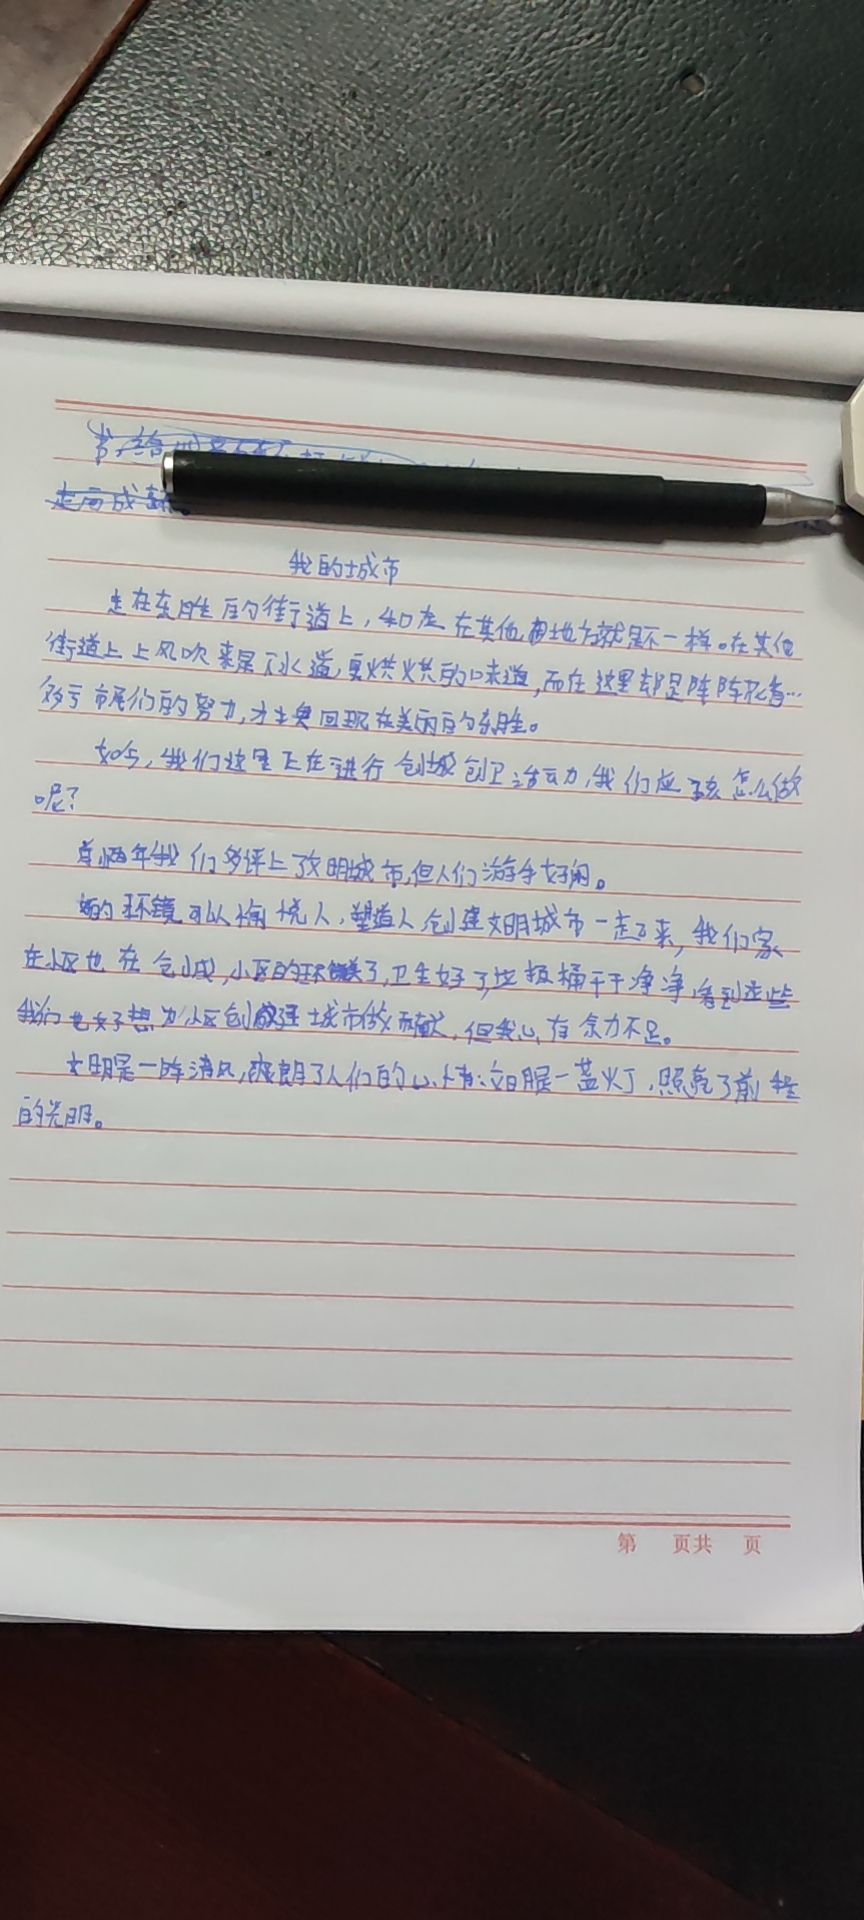 走向成
我的城市
走在东胜的街道上,和在其他地方就是不一样。在其他
街道上上风吹来是下水道,臭烘烘的味道,而在这里却是阵阵花香…
多亏市民们的努力,才主奂回现在美丽的东胜。
如今,我们这里正在进行创城创卫活动,我们应该怎么做
呢?
前两年我们多评上文明城市,但人们游手好闲。
的环镜可以愉悦人,塑造人,创建文明城市一起来,我们家
在小区也在创城,小区的环镜美了,卫生好了,垃极桶干干净净,看到这些
我们也好想为小区创城建城市做贡献,但我心有余力不足。
文明是一阵清风,爽朗了人们的心情;文明是一盏灯,照亮了前程
的光明。
第 页共 页